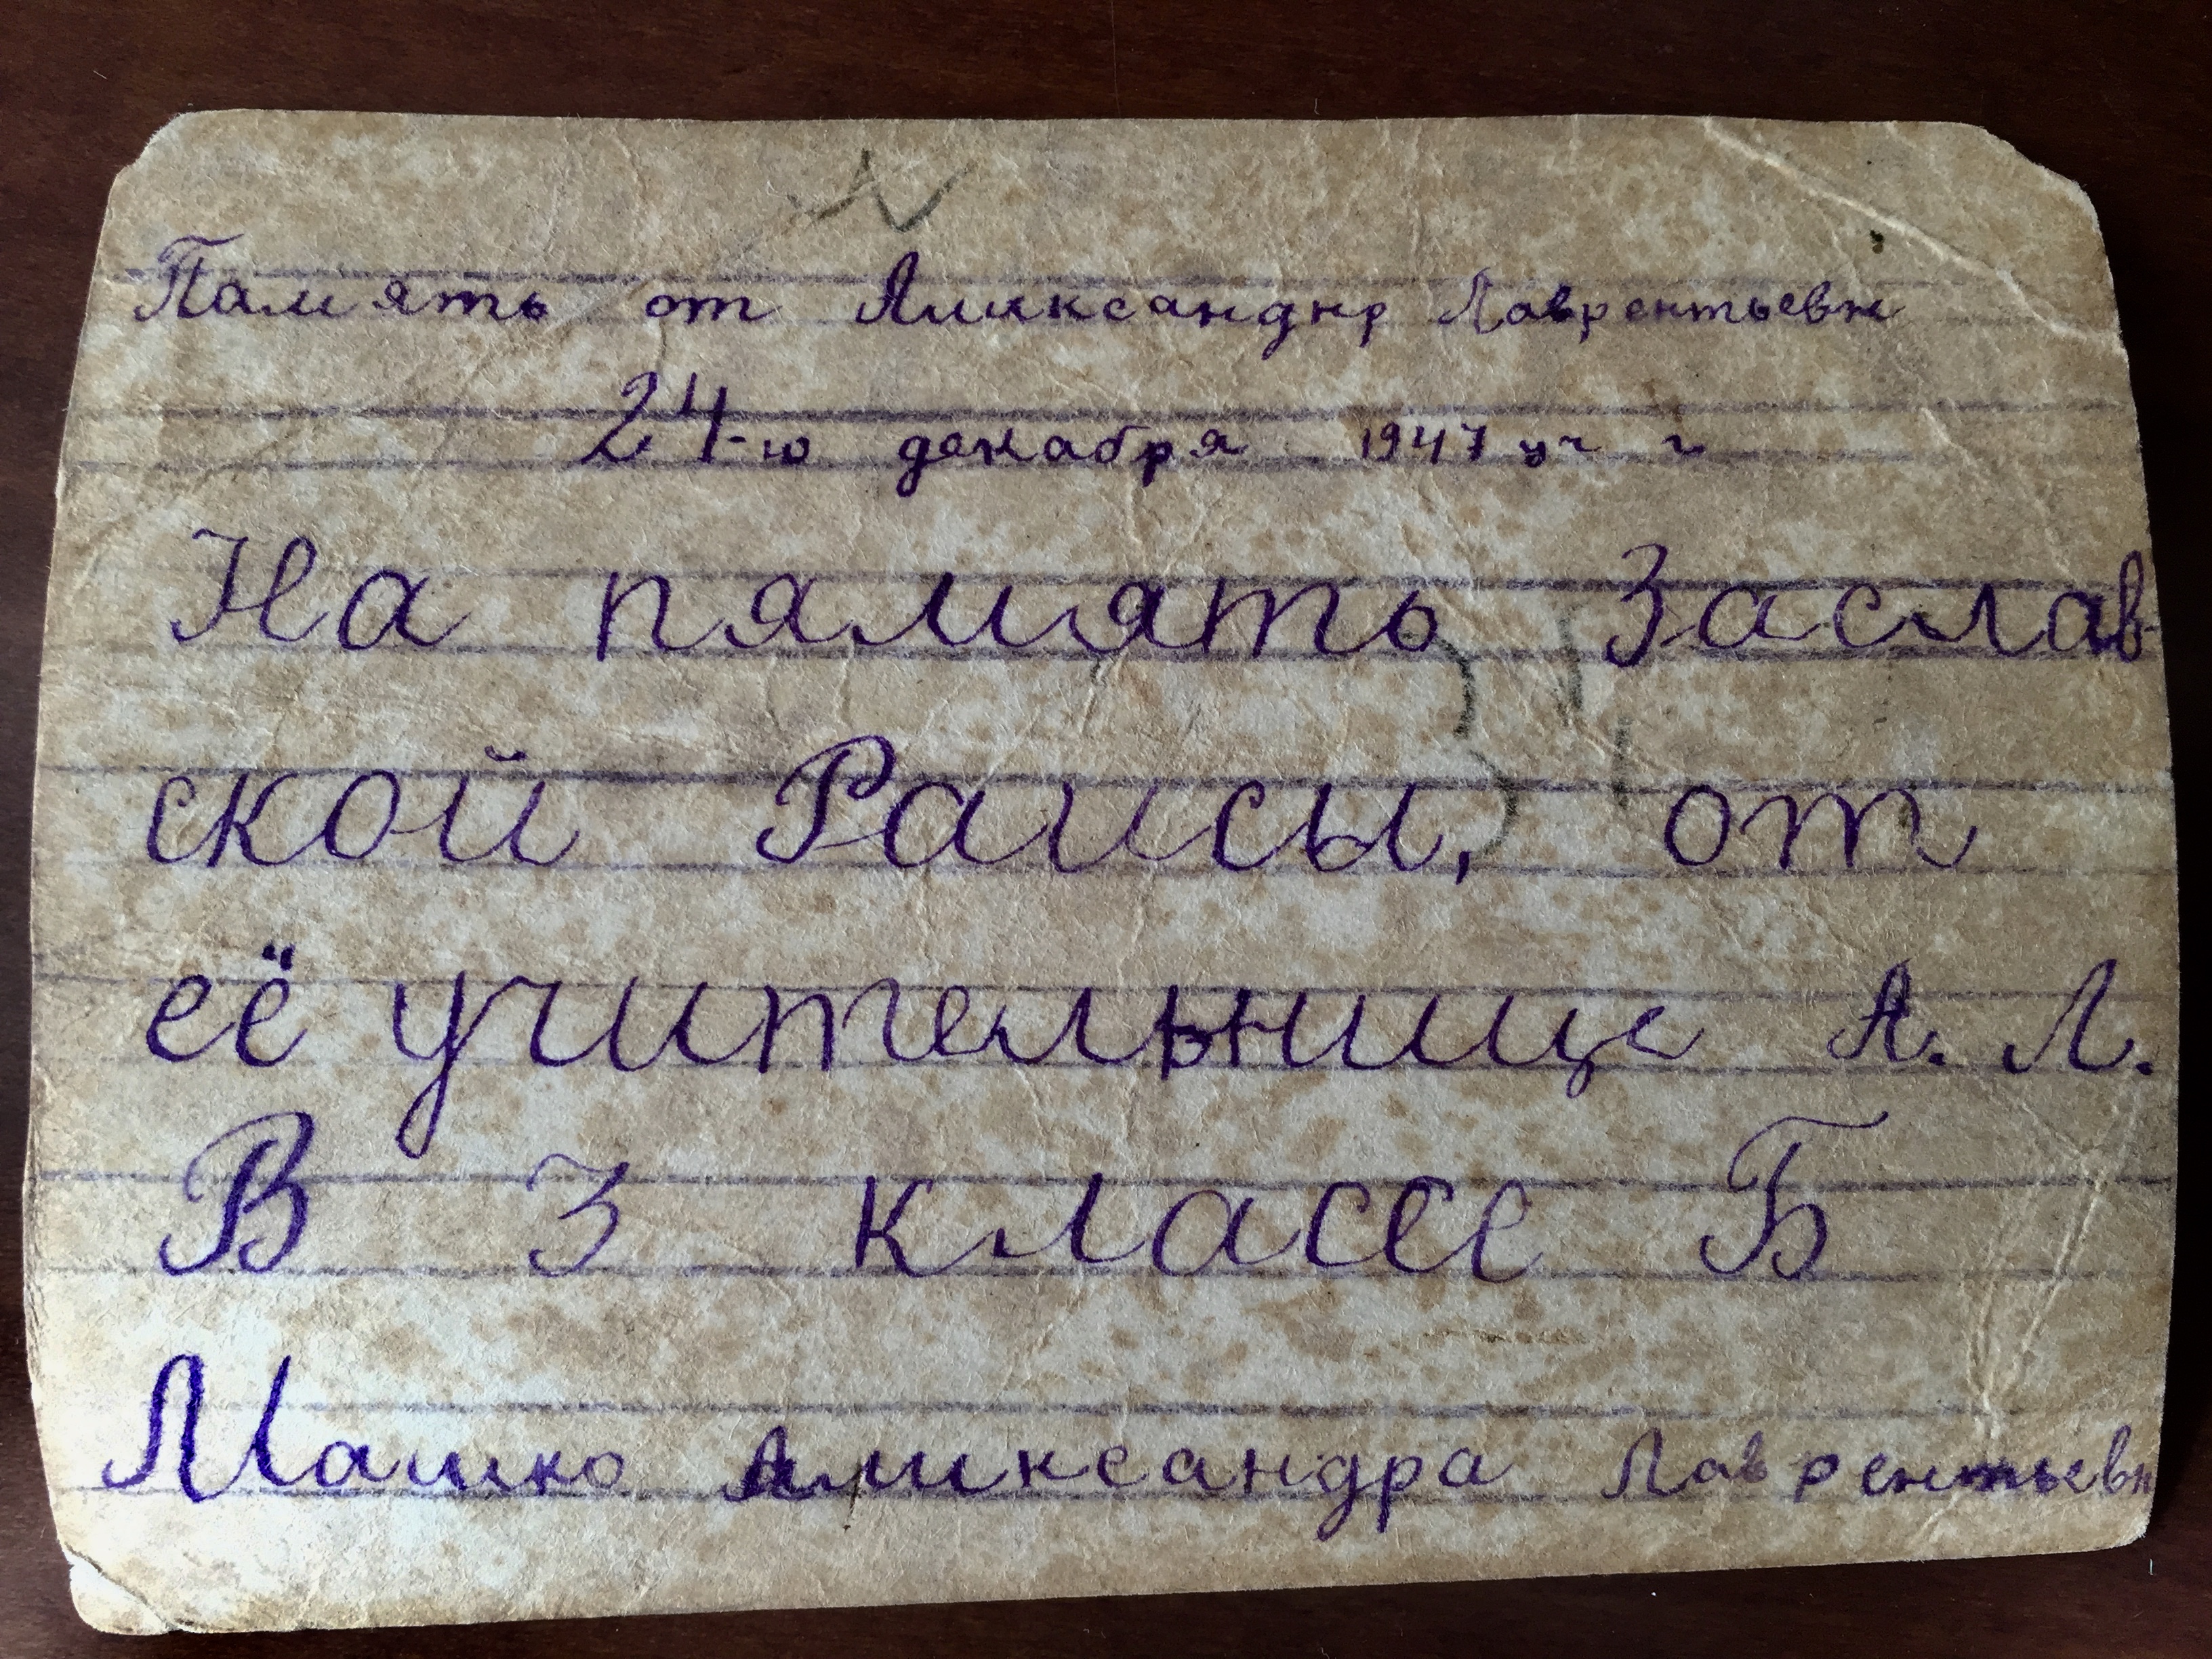 Память от Аликсанднр Лаврентьевн
24-ю декабря 1947 уч г
На пямять Заслав-
ской Раисы, от
её учительнице А. Л.
В 3 классе Б
Машко Аликсандра Лаврентьевн